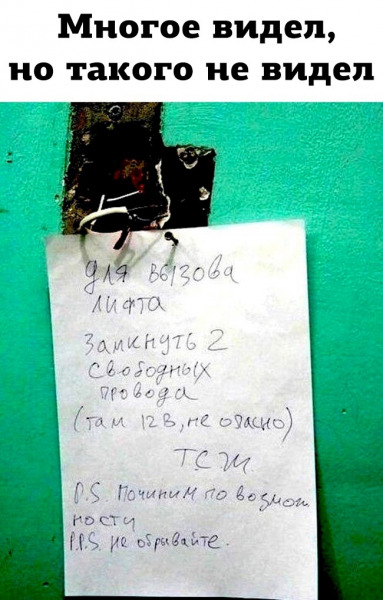 Многое видел,
но такого не видел
Для вызова
лифта
Замкнуть 2
свободных
провода
(там 12 В, не опасно)
ТСЖ
P.S. Починим по возмож
ности
P.P.S. не обрывайте.